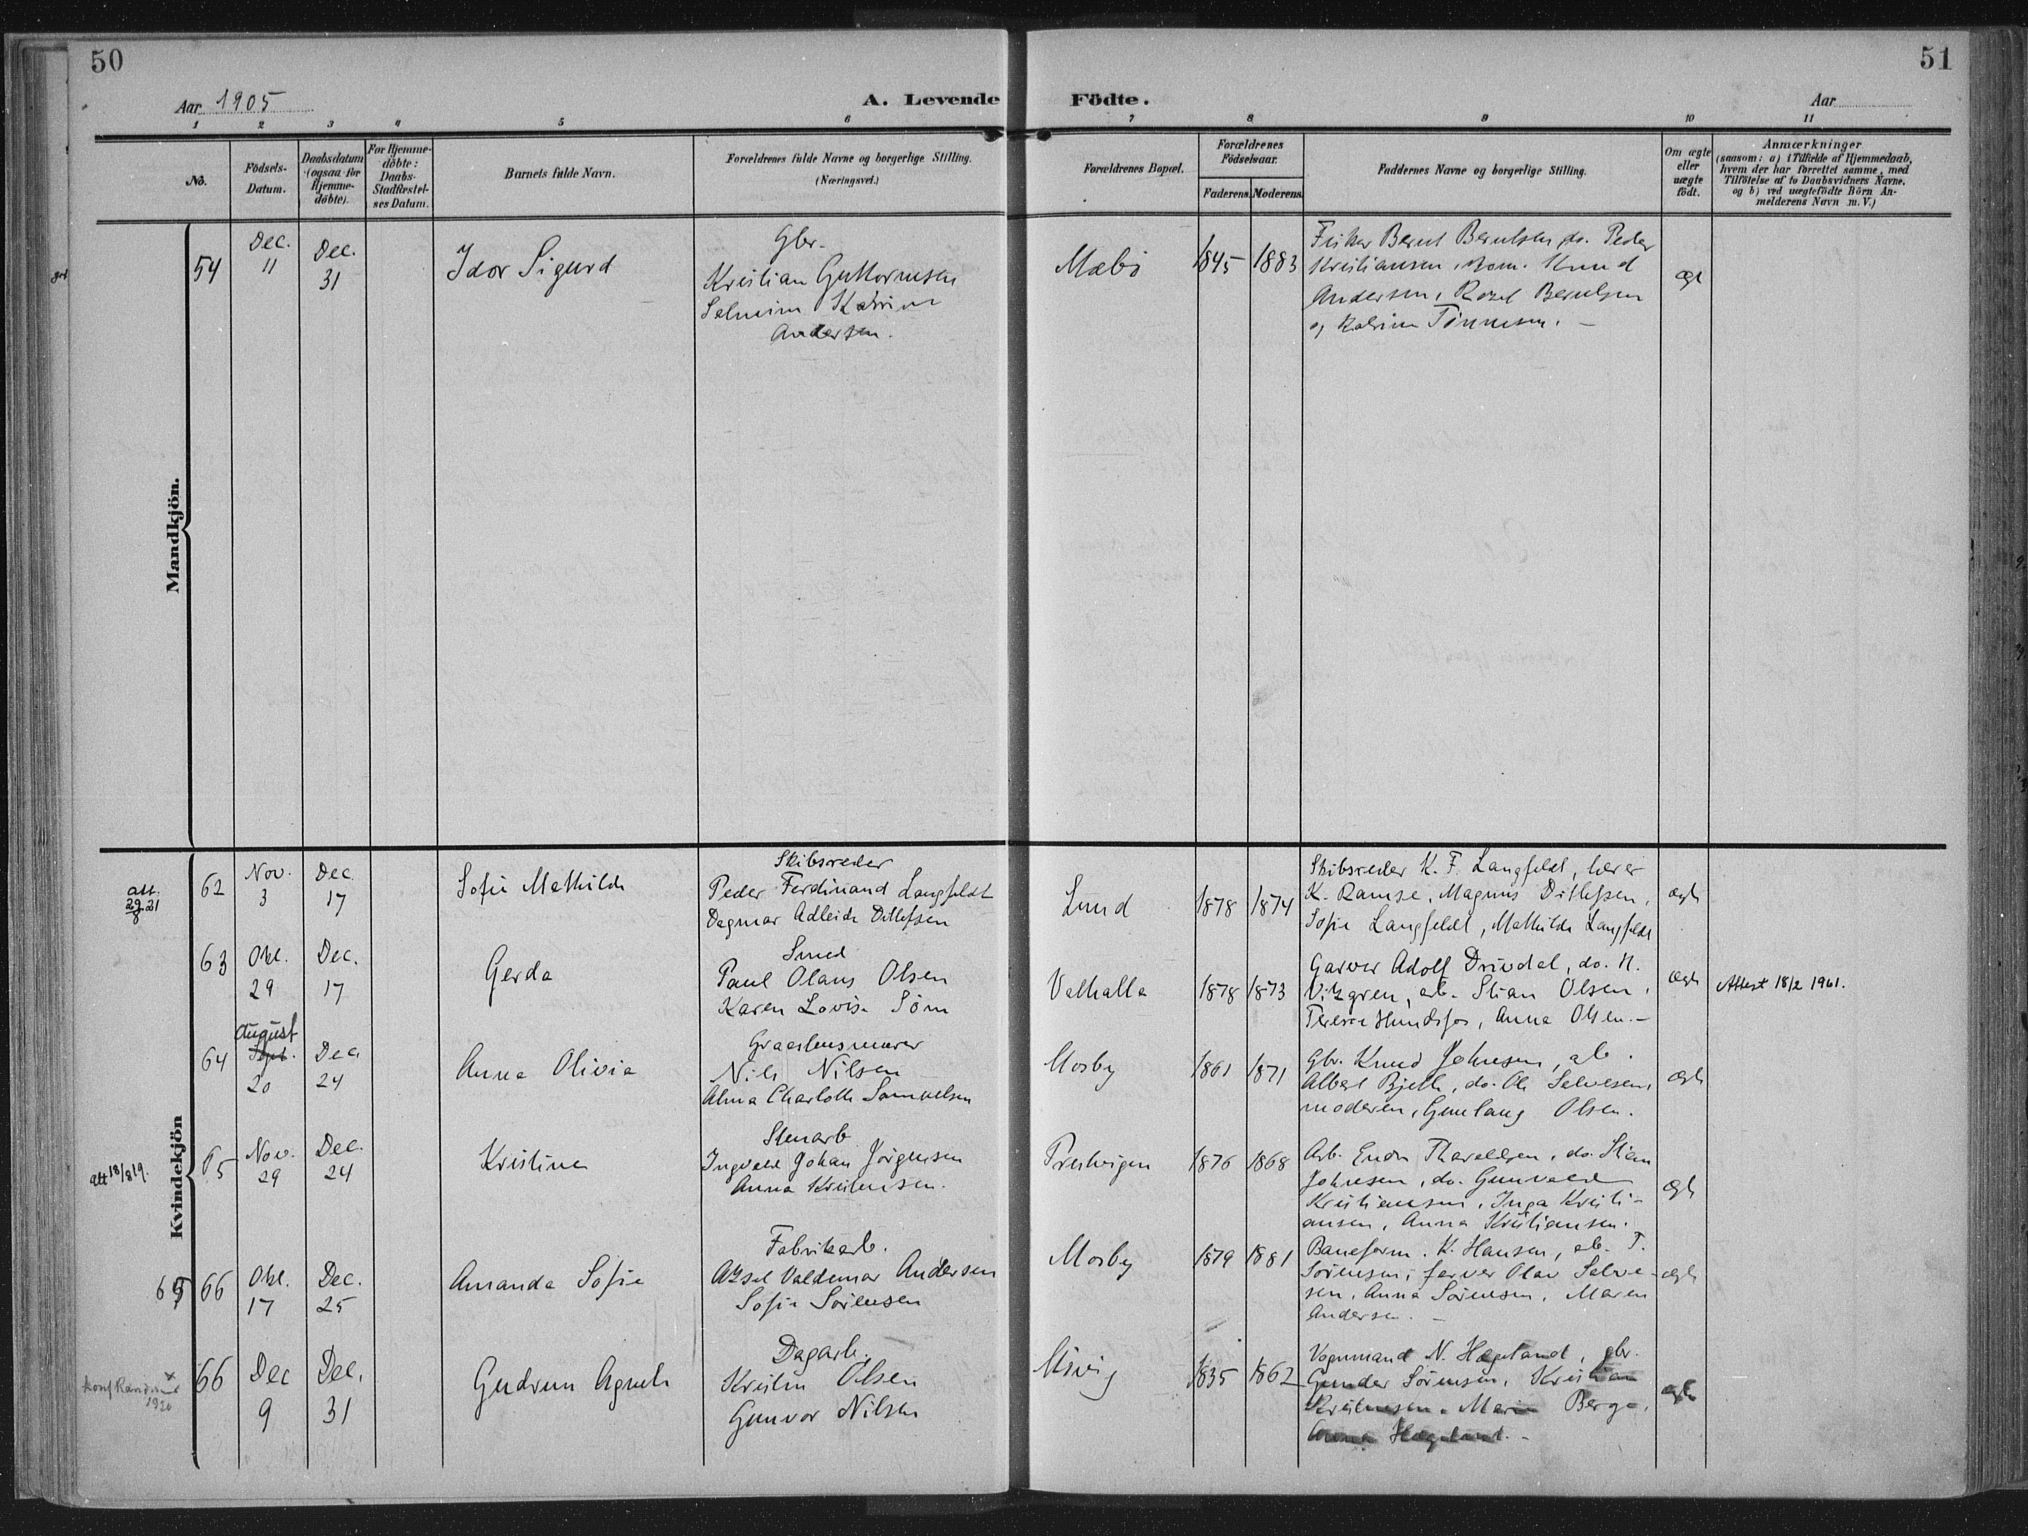 50
51
Aar 1905
A. Levende
Födte.
Aar
1 2 3 4 5 6 7 8 9 10 11
No.
Födsels-
Datum.
Daabsdatum
(ogsaa for
Hjemme-
döbte).
For Hjemme-
döbte:
Daabs-
Stadfæstel-
ses Datum.
Barnets fulde Navn.
Forældrenes fulde Navne og borgerlige Stilling.
(Næringsvei.)
Forældrenes Bopæl.
Forældrenes
Födselsaar.
Faderens.
Moderens.
Faddernes Navne og borgerlige Stilling.
Om ægte
eller
uægte
födt.
Anmærkninger
(saasom: a) i Tilfælde af Hjemmedaab,
hvem der har forrettet samme, med
Tilföielse af to Daabsvidners Navne,
og b) ved uægtefödte Börn An-
melderens Navn m. V.)
Mandkjön.
54
Dec.
11
Dec.
31
Idor Sigurd
Gbr.
Kristian Guttormsen
Katrine
Andersen.
Mæbø
1845
1883
Fisker Bernt Berntsen, do. Peder
Kristiansen, Knud
Andersen, Berntsen
og Katrine Tønnesen. -
ægt
Kvindekjön
att.
29/8 21
62
Nov.
3
Dec.
17
Sofie Mathilde
Skibsreder
Peder Ferdinand Langfeldt
Dagmar Adleide Ditlefsen
Lund
1878
1874
Skibsreder K. F. Langfeldt, lærer
K. Ramse, Magnus Ditlefsen,
Sofie Langfeldt, Mathilde Langfeldt
ægt
63
Okt.
29
Dec.
17
Gerda
Smed
Paul Olaus Olsen
Karen Lovise Sørn
Valhalla
1878
1873
Garver Adolf Drivdal, do. N.
arb. Stian Olsen,
Terese Hundsfos, Anna Olsen. -
ægt
Attest 18/2 1961.
64
August
Sept.
20
Dec.
24
Anna Olivia
Graastensmurer
Nils Nilsen
Alma Charlotte Samuelsen
Mosby
1861
1871
Gbr. Knud Johnsen, arb.
Albert Bjelk, do. Ole Salvesen,
moderen, Gunlaug Olsen.
ægt
att 18/8 19.
65
Nov.
29
Dec.
24
Kristine
Stenarb
Ingvald Johan Jörgensen
Anna Kristensen.
Prestvigen
1876
1868
Arb. Endre Tharaldsen, do. Stian
Johnsen, do. Gunvald
Kristiansen, Inga Kristi-
ansen, Anna Kristiansen.
ægt
65
66
Okt.
17
Dec.
25
Amanda Sofie
Fabrikarb.
Aksel Valdemar Andersen
Sofie Sörensen
Mosby
1879
1881
Baneform. K. Hansen, arb. T.
Sörensen, farver Olav Salve-
sen, Anna Sörensen, Maren
Andersen. -
ægt
1920
66
Dec
9
Dec.
31
Gudrun Agnete
Dagarb.
Kristen Olsen
Gunvor Nilsen
1835
1862
Vognmand N. Hægeland, gbr.
Gunder Sörensen, Kristian
Kristensen, Marie Berge,
Anna Hægeland. -
ægte